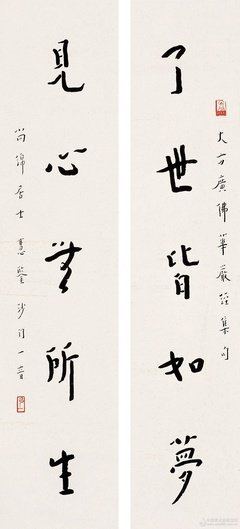 了世皆如夢
大方廣佛華嚴經集句
見心無所生
居士慧鑒沙門一音